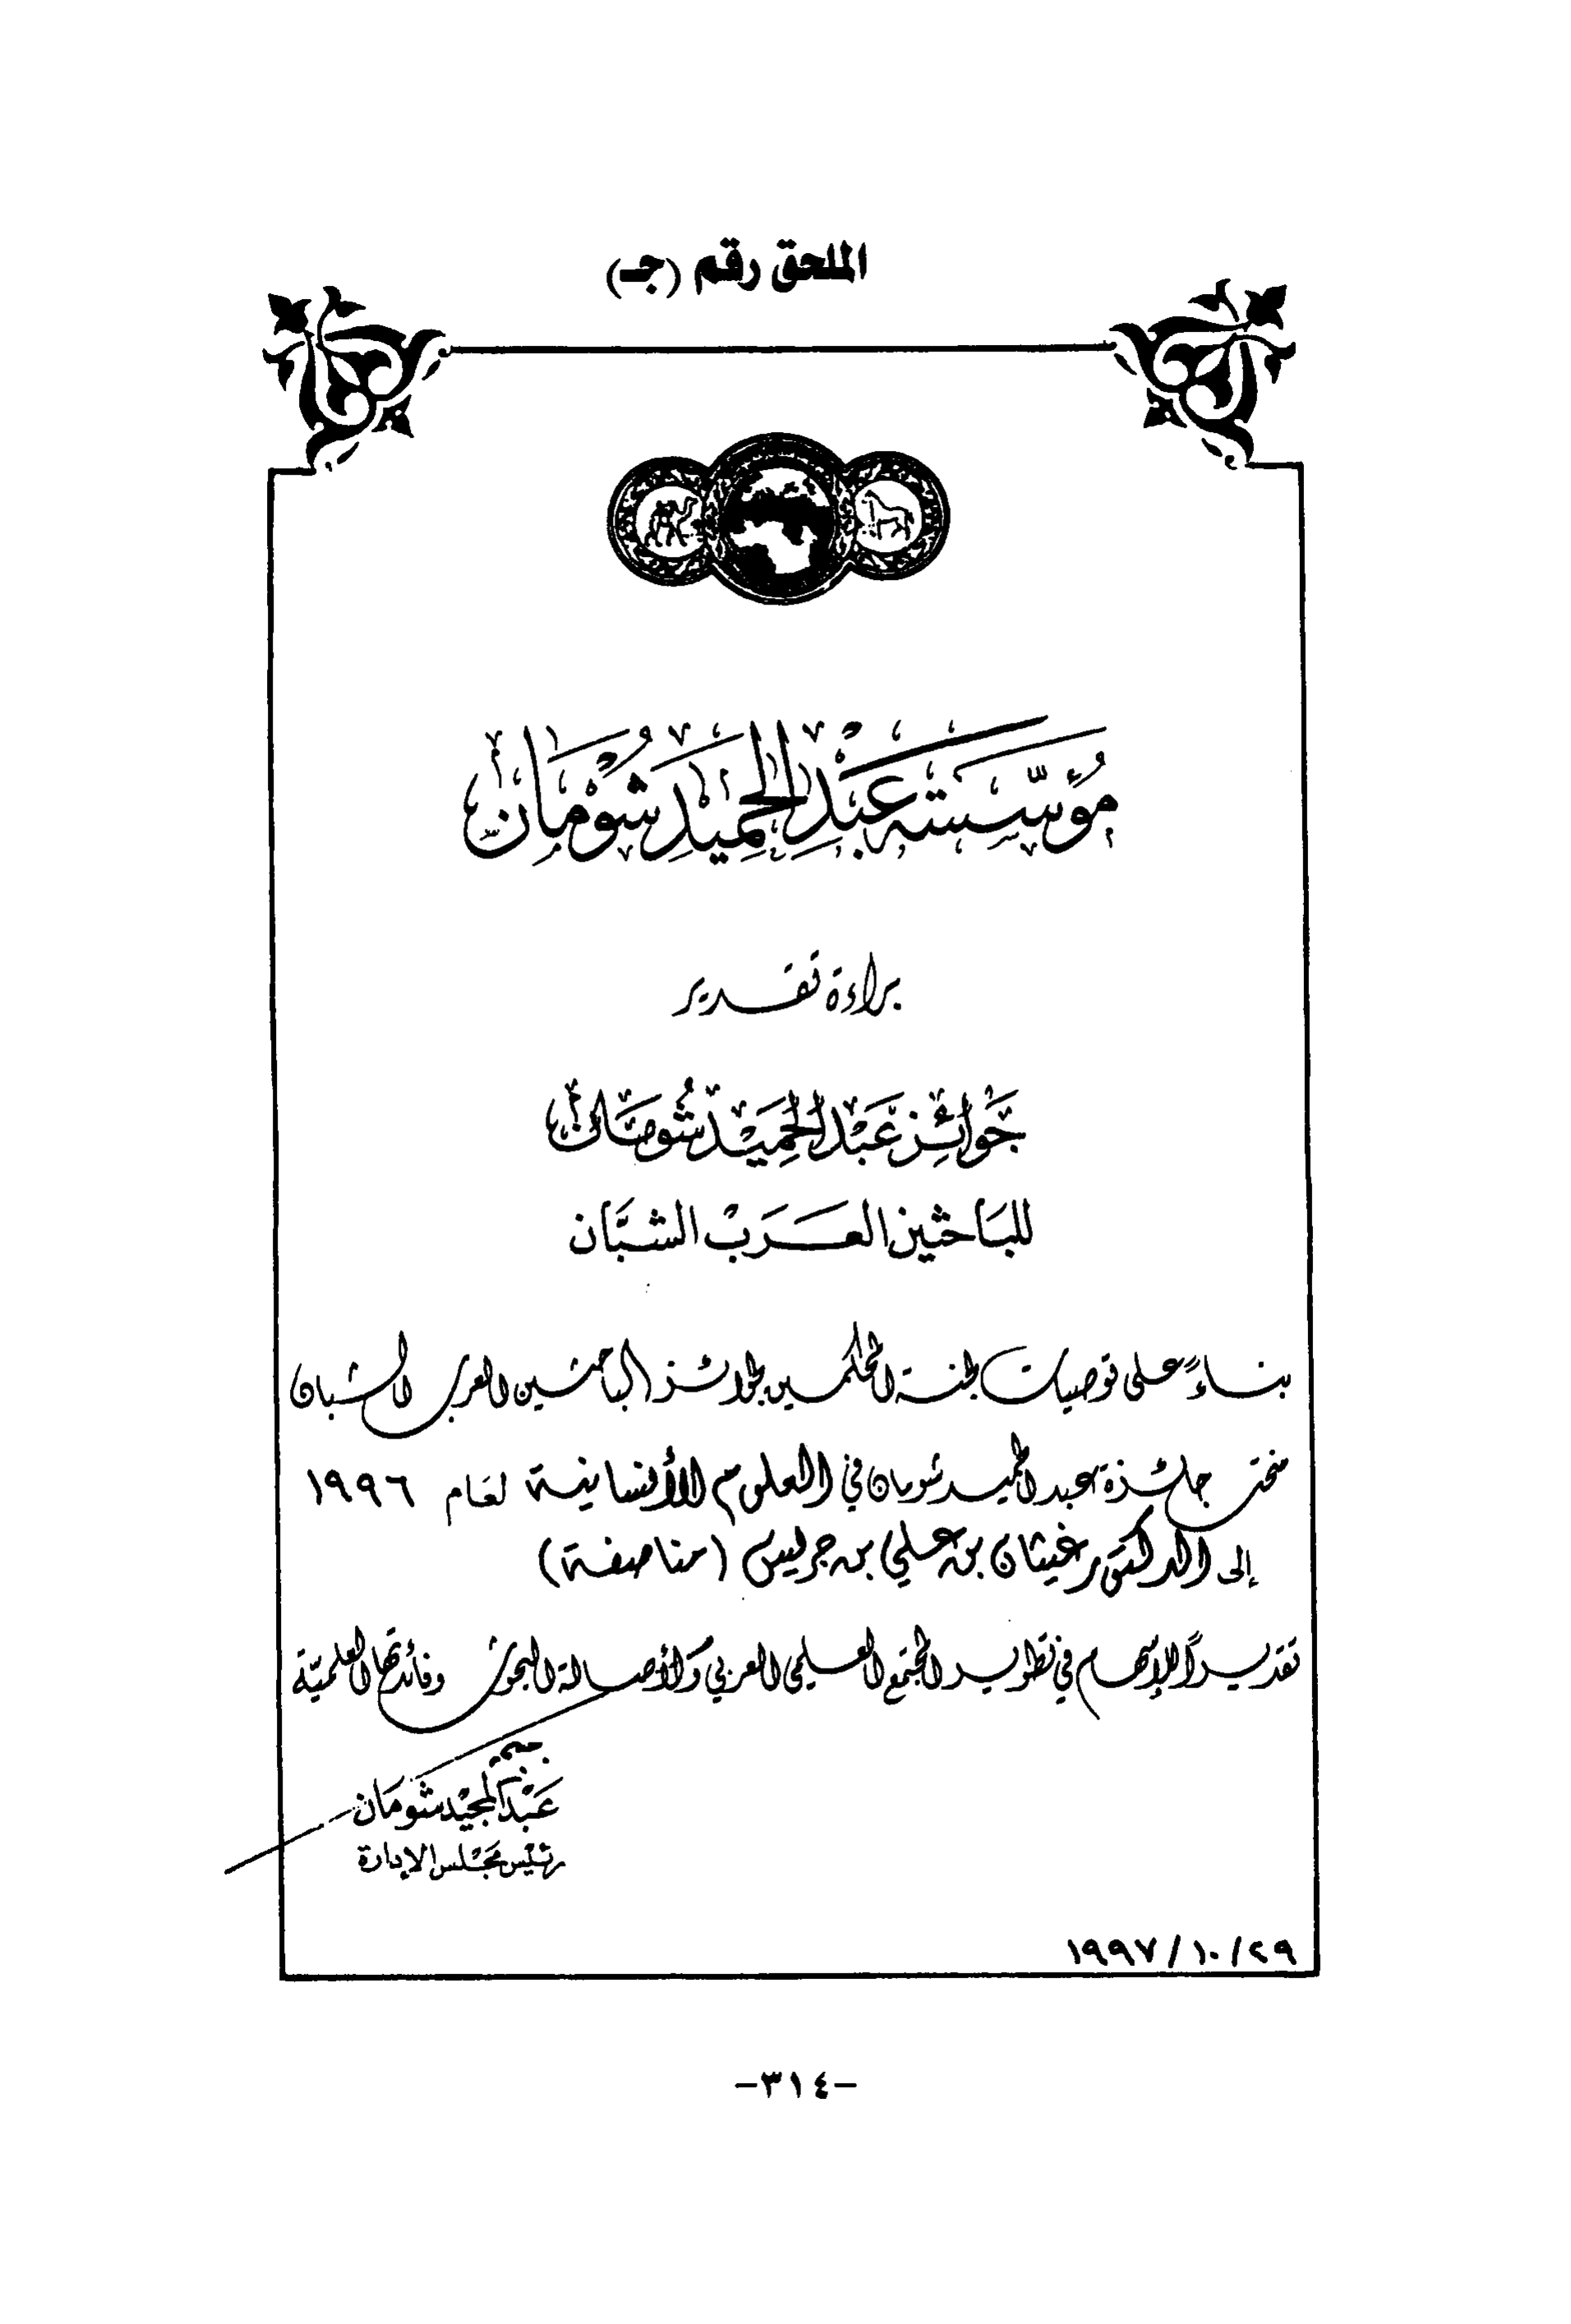 الملحق رقم (جـ)
مؤسسة عبد الحميد شومان
براءة تقدير
جوائز عبد الحميد شومان
للباحثين العرب الشبان
بناءً على توصيات لجنة المحكمين بجوائز الباحثين العرب الشبان
منحت جائزة عبد الحميد شومان في العلوم الأنسانية لعام ١٩٩٦
إلى الدكتور غيثان بن علي بن جريس (مناصفة)
تقديراً للإسهام في تطوير المجتمع العلمي العربي ولأصالة البحوث وفائدتها العلمية
عبد المجيد شومان
رئيس مجلس الإدارة
١٩٩٧/١٠/٢٩
-٣١٤-